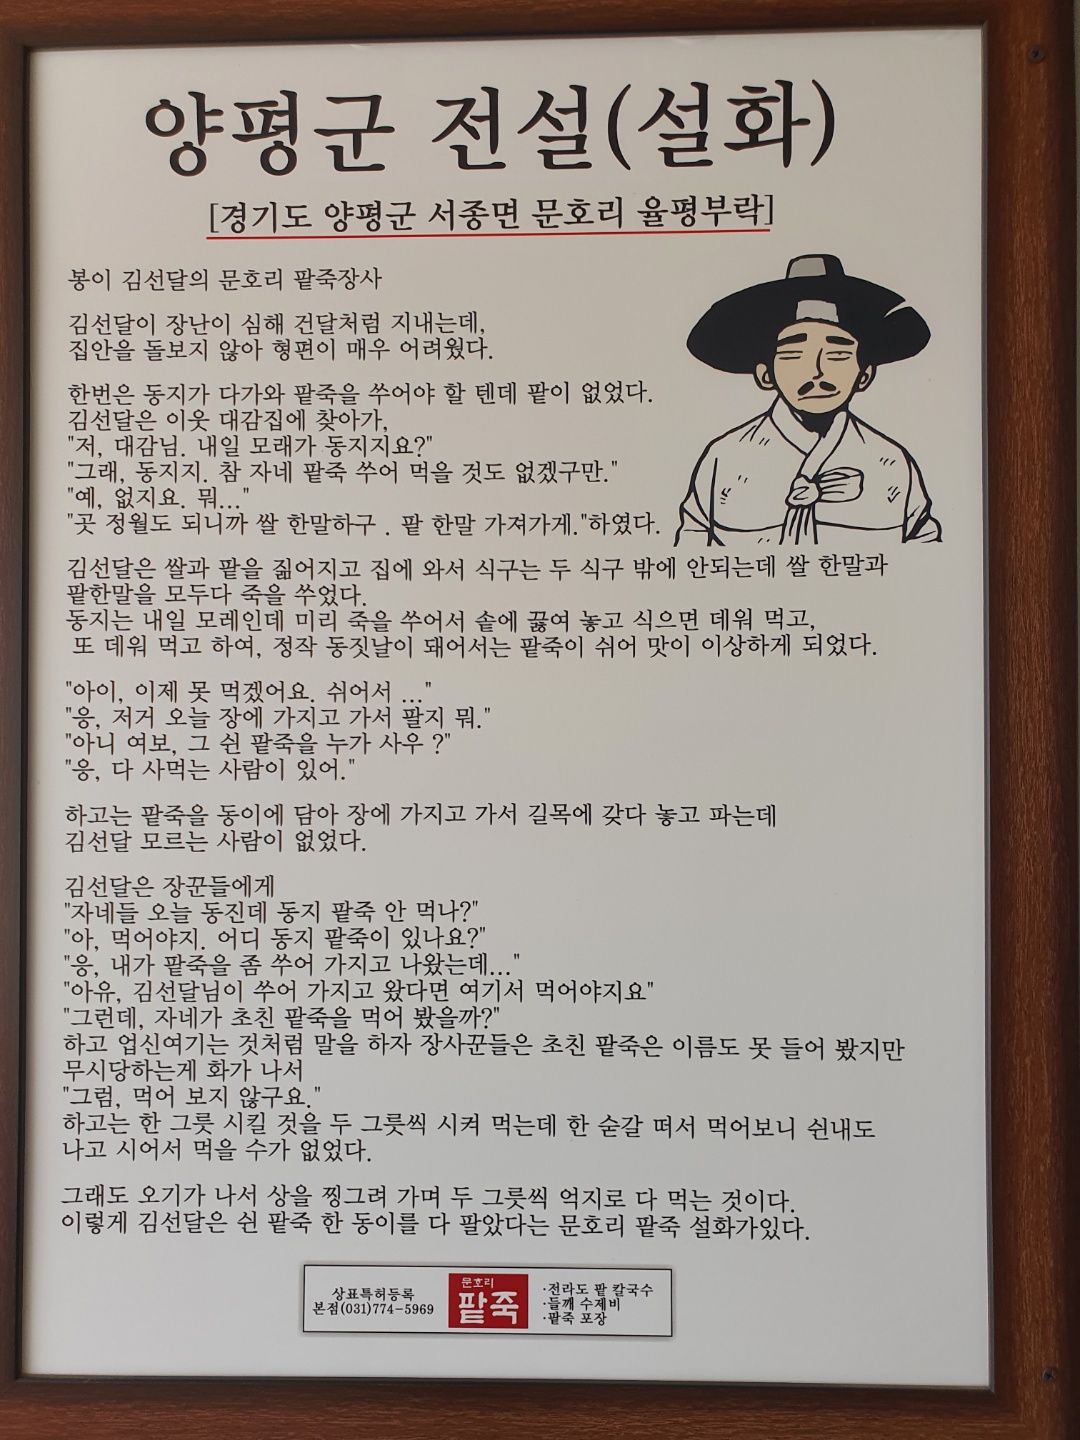 양평군 전설(설화)
[경기도 양평군 서종면 문호리 율평부락]
봉이 김선달의 문호리 팥죽장사
김선달이 장난이 심해 건달처럼 지내는데,
집안을 돌보지 않아 형편이 매우 어려웠다.
한번은 동지가 다가와 팥죽을 쑤어야 할 텐데 팥이 없었다.
김선달은 이웃 대감집에 찾아가,
"저, 대감님. 내일 모래가 동지지요?"
"그래, 동지지. 참 자네 팥죽 쑤어 먹을 것도 없겠구만."
"예, 없지요. 뭐..."
"곳 정월도 되니까 쌀 한말하구 . 팥 한말 가져가게."하였다.
김선달은 쌀과 팥을 짊어지고 집에 와서 식구는 두 식구 밖에 안되는데 쌀 한말과
팥한말을 모두다 죽을 쑤었다.
동지는 내일 모레인데 미리 죽을 쑤어서 솥에 끓여 놓고 식으면 데워 먹고,
또 데워 먹고 하여, 정작 동짓날이 돼어서는 팥죽이 쉬어 맛이 이상하게 되었다.
"아이, 이제 못 먹겠어요. 쉬어서 ..."
"응, 저거 오늘 장에 가지고 가서 팔지 뭐."
"아니 여보, 그 쉰 팥죽을 누가 사우 ?"
"응, 다 사먹는 사람이 있어."
하고는 팥죽을 동이에 담아 장에 가지고 가서 길목에 갖다 놓고 파는데
김선달 모르는 사람이 없었다.
김선달은 장꾼들에게
"자네들 오늘 동진데 동지 팥죽 안 먹나?"
"아, 먹어야지. 어디 동지 팥죽이 있나요?"
"응, 내가 팥죽을 좀 쑤어 가지고 나왔는데..."
"아유, 김선달님이 쑤어 가지고 왔다면 여기서 먹어야지요"
"그런데, 자네가 초친 팥죽을 먹어 봤을까?"
하고 업신여기는 것처럼 말을 하자 장사꾼들은 초친 팥죽은 이름도 못 들어 봤지만
무시당하는게 화가 나서
"그럼, 먹어 보지 않구요."
하고는 한 그릇 시킬 것을 두 그릇씩 시켜 먹는데 한 숟갈 떠서 먹어보니 쉰내도
나고 시어서 먹을 수가 없었다.
그래도 오기가 나서 상을 찡그려 가며 두 그릇씩 억지로 다 먹는 것이다.
이렇게 김선달은 쉰 팥죽 한 동이를 다 팔았다는 문호리 팥죽 설화가있다.
상표특허등록
본점(031)774-5969
문호리
팥죽
·전라도 팥 칼국수
·들깨 수제비
·팥죽 포장